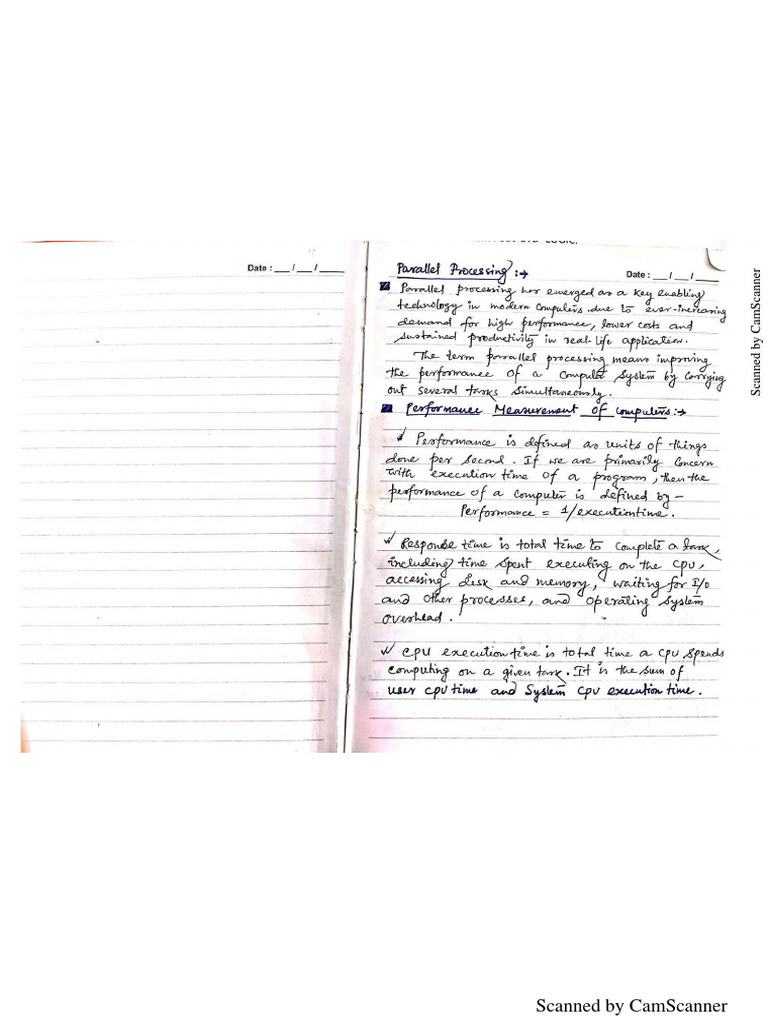 Date : ___ / ___ / ____
LOGIC.
Parallel Processing :→
Date : ___ / ___ / ____
Parrallel processing has emerged as a key enabling
technology in modern computers due to ever-increasing
demand for high performance, lower costs and
sustained productivity in real-life application.
The term parrallel processing means improving
the performance of a computer system by carrying
out several tasks simultaneously.
Performance Measurement of computers :→
✓ Performance is defined as units of things
done per second. If we are primarily concern
with execution time of a program, then the
performance of a computer is defined by –
Performance = 1/executiontime.
✓ Response time is total time to complete a task,
including time spent executing on the CPU,
accessing disk and memory, waiting for I/o
and other processes, and operating system
overhead.
✓ CPU execution time is total time a CPU spends
computing on a given task. It is the sum of
user cpu time and System cpu execution time.
Scanned by CamScanner
Scanned by CamScanner